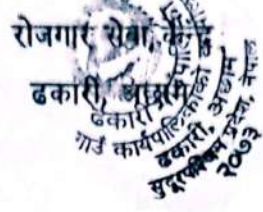 रोजगार सेवा केन्द्र
ढकारी, अछाम
ढकारी
गाउँ कार्यपालिकाको
ढकारी, अछाम
सुदूरपश्चिम प्रदेश, नेपाल
२०७३